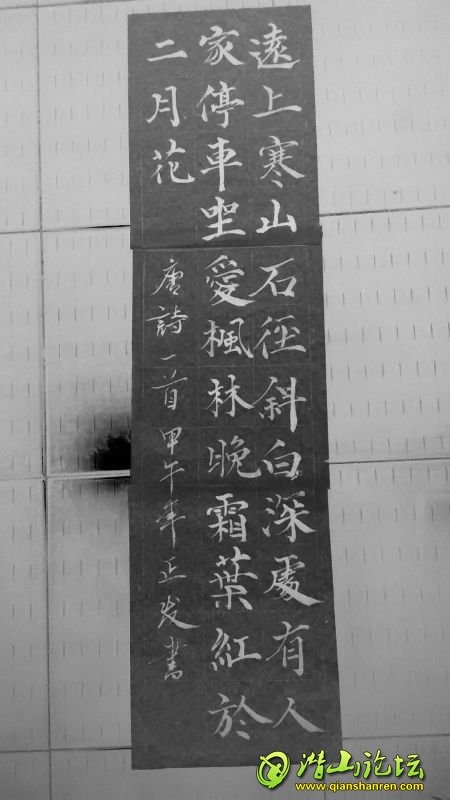 遠上寒山石徑斜白深處有人
家停車坐愛楓林晚霜葉紅於
二月花
唐詩一首甲午年正发書
潜山论坛
www.qianshanren.com